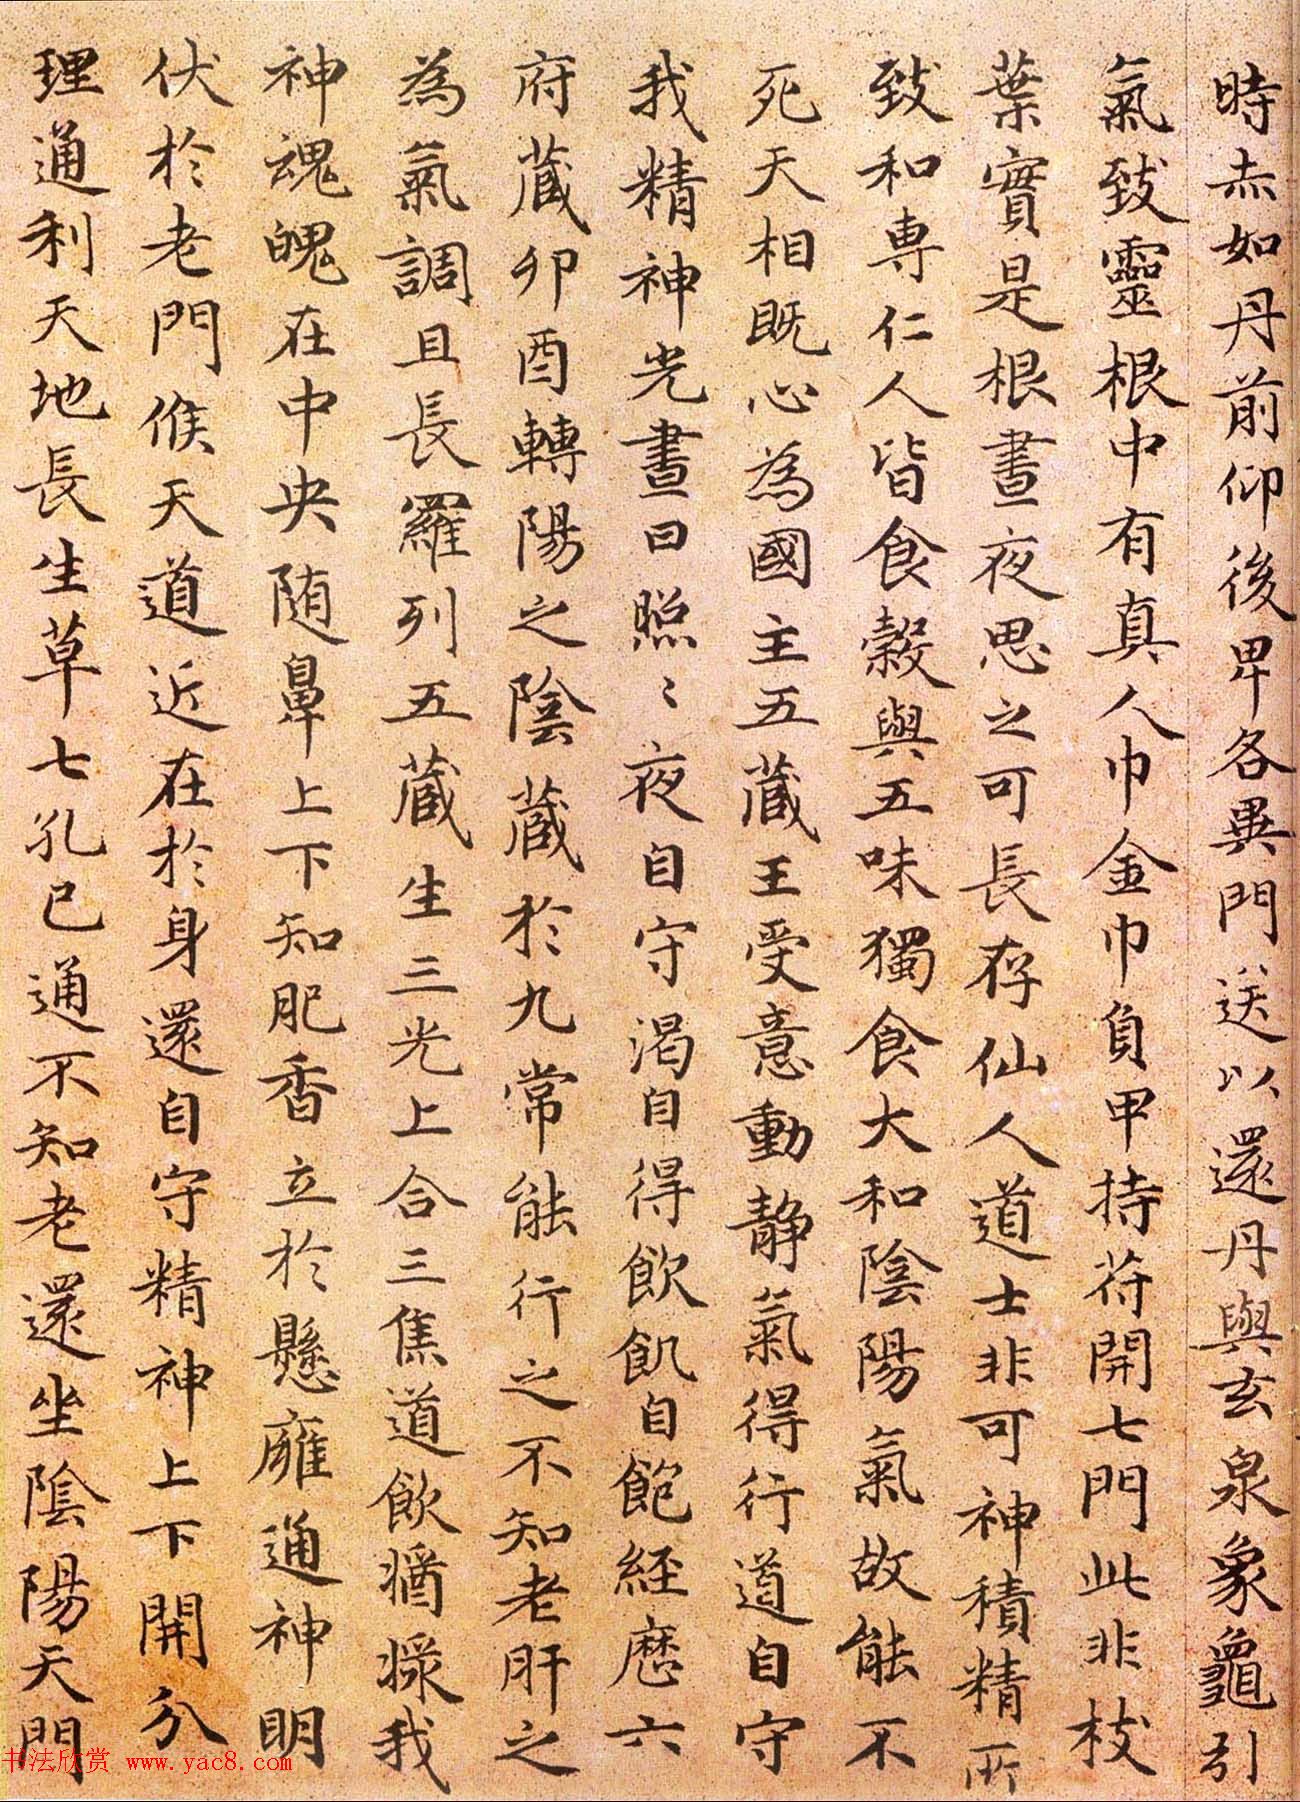 時赤如丹前仰後卑各異門送以還丹與玄泉象龜引
氣致靈根中有真人巾金巾負甲持苻開七門此非枝
葉實是根晝夜思之可長存仙人道士非可神積精所
致和專仁人皆食穀與五味獨食大和陰陽氣故能不
死天相既心為國主五藏王受意動靜氣得行道自守
我精神光晝日照〻夜自守渴自得飲飢自飽経歷六
府藏卯酉轉陽之陰藏於九常能行之不知老肝之
為氣調且長羅列五藏生三光上合三焦道飲
我
神魂魄在中央随鼻上下知肥香立於懸廱通神明
伏於老門候天道近在於身還自守精神上下開分
理通利天地長生草七孔已通不知老還坐陰陽天門
书法欣赏 www.yac8.com